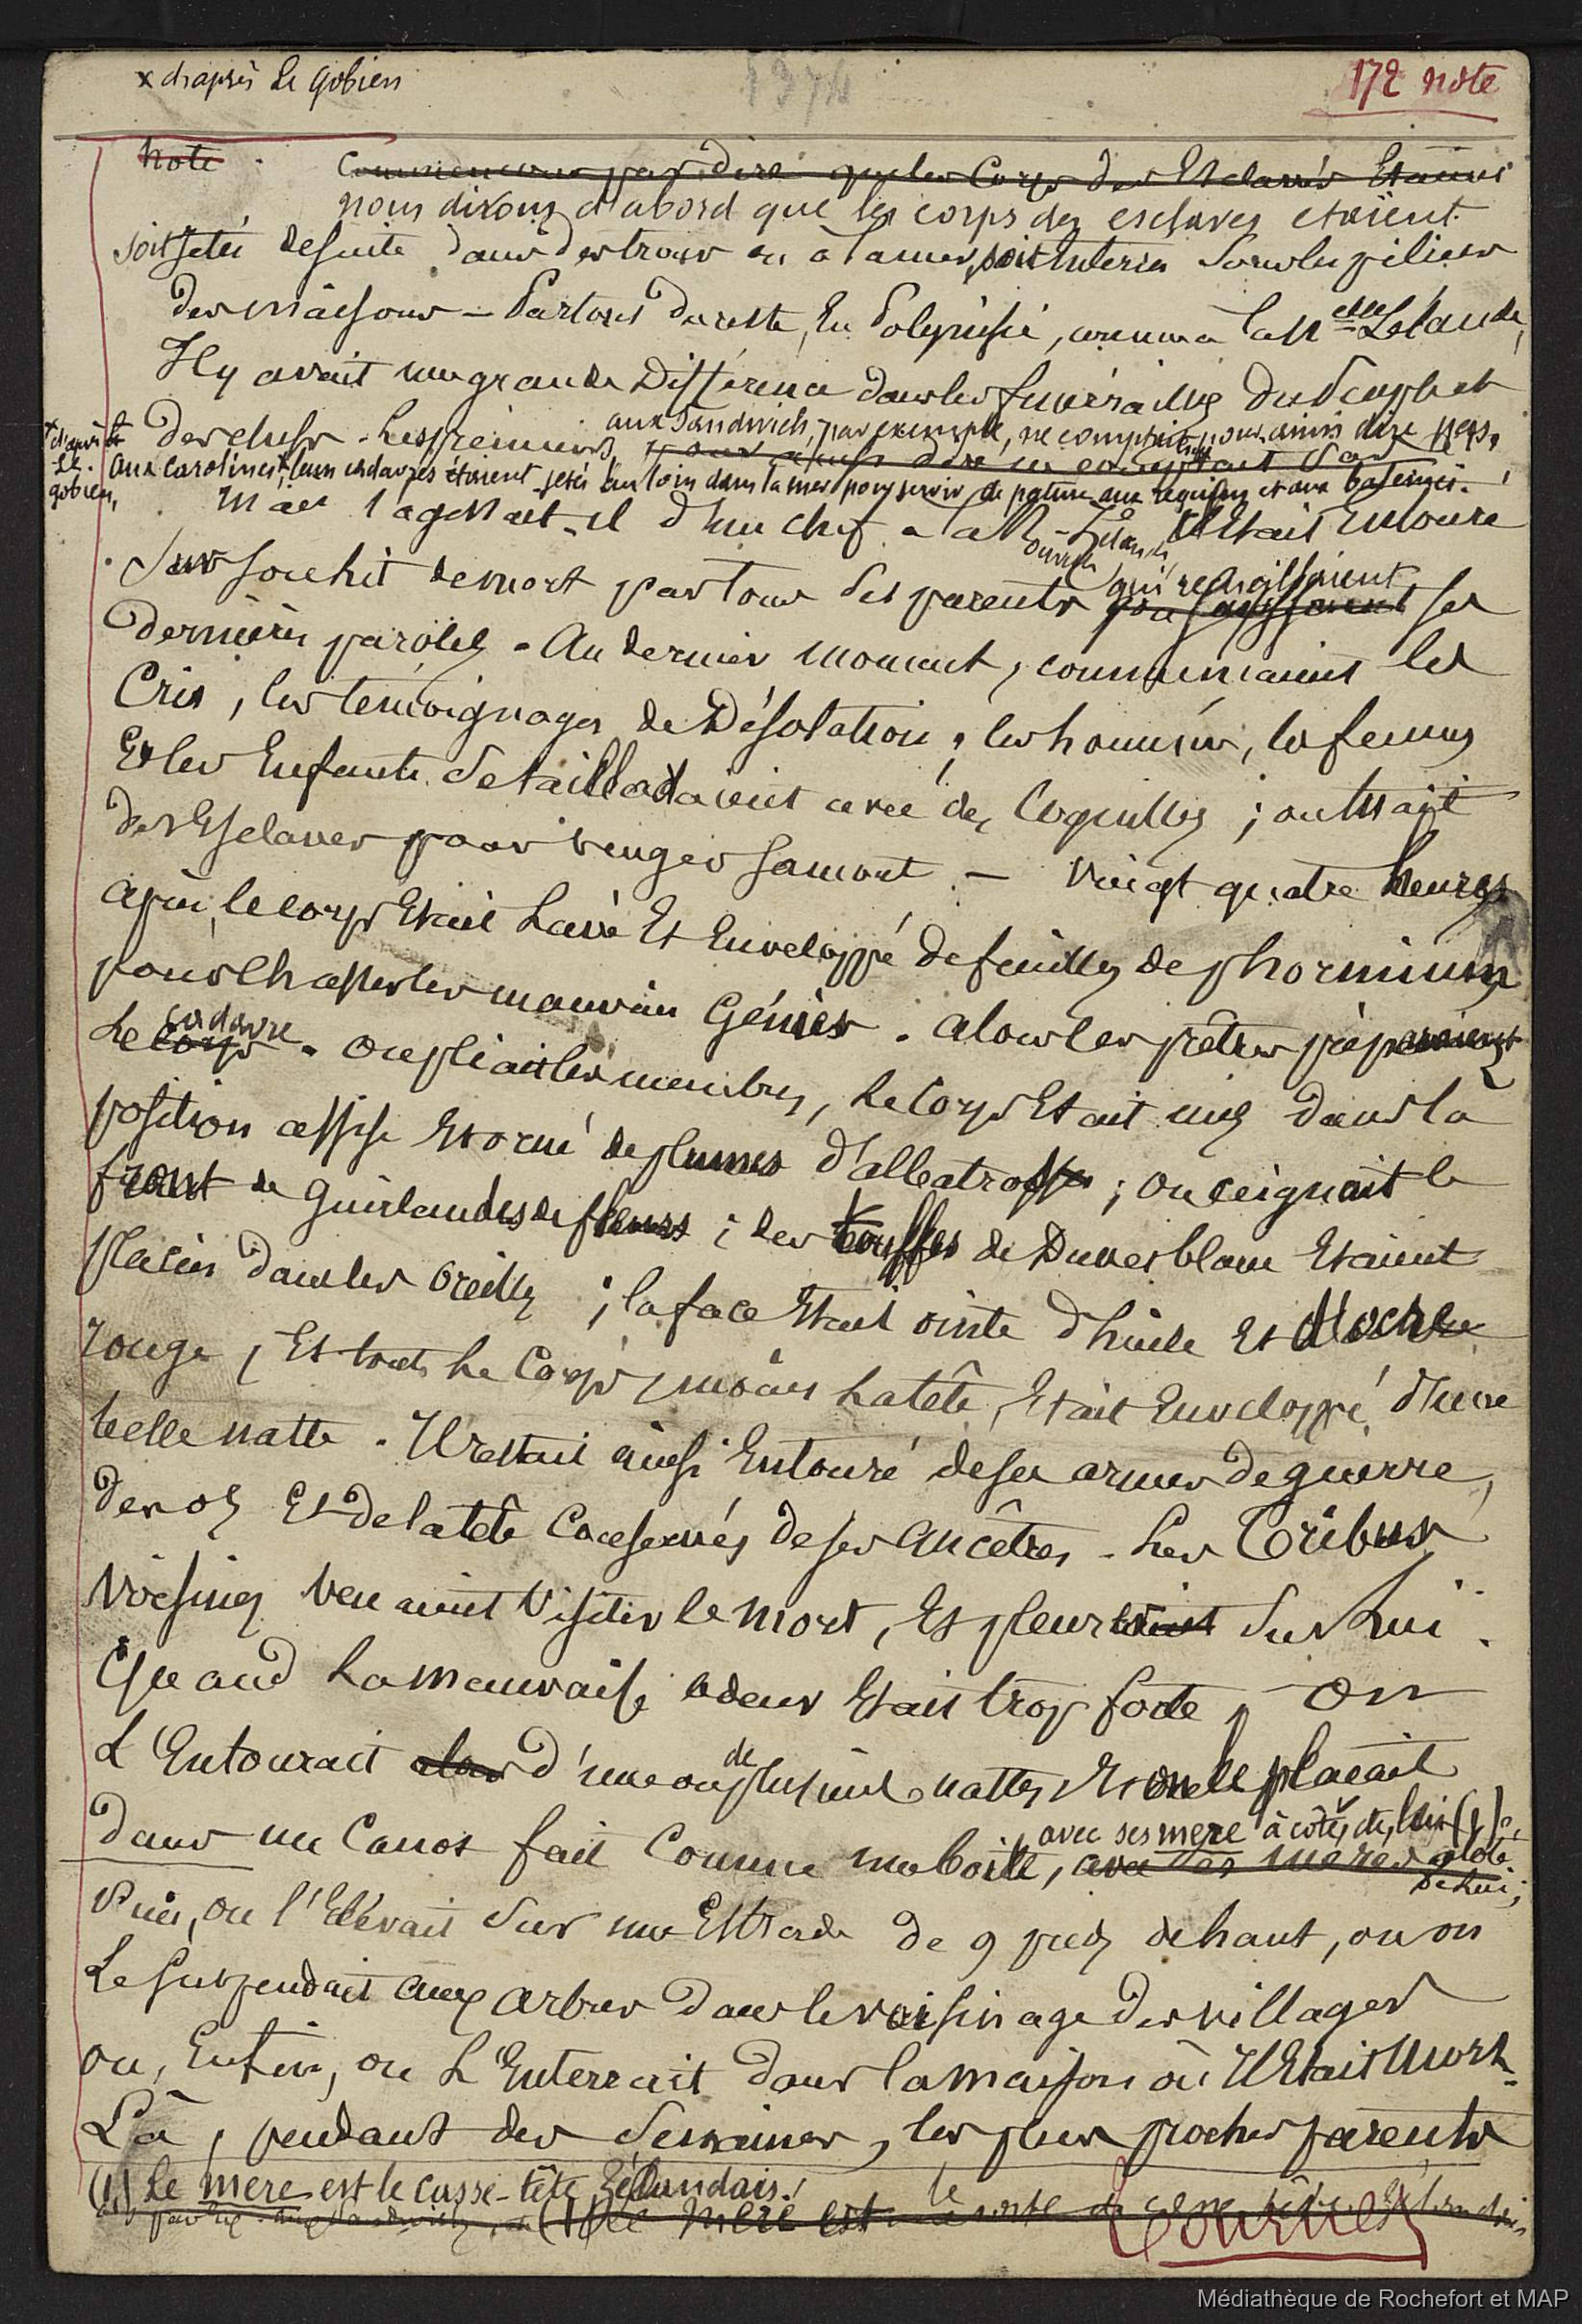 x d'après Le Gobien
172 note
Note
Commencerons par dire que les Corps des Esclaves Etaient
nous dirons d'abord que les corps des esclaves etaient
soit jetés desuite dans des trous ou à la mer, soit Enterrés sous les piliers
des maisons – Partout du reste, En Polynésie, comme à la Nelle Zélande,
Il y avait une grande Différence dans les funérailles du Peuple et
des chefs. Les premiers, aux Sandwich, par exemple, ne comptaient pour ainsi dire pas,
pour ainsi dire ne comptant pas
x d'après Le gobien,
Aux Carolines x, leurs cadavres étaient jetés au loin dans la mer pour servir de pature aux requins et aux baleines.
Mais s'agissait-il d'un chef à la N. Zélande, Il Etait Entouré
Sur son lit de mort par tous ses parents qui recueillaient ses
dernières paroles. Au dernier moment, commençaient les
Cris, les témoignages de Désolation ; les hommes, les femmes
Et les Enfants se tailladaient avec des Coquilles ; on tuait
des Esclaves pour venger sa mort. – Vingt quatre heures
après, le corps Etait Lavé Et Enveloppé de feuilles de phormium
pour Chasser les mauvais Génies. Alors les prêtres préparaient
Le Corps cadavre. On pliait les membres, Le Corps Etait mis dans la
position assise Et orné de plumes d'albatros ; on ceignait le
front de Guirlandes de fleurs ; des touffes de Duvet blanc Etaient
placées dans les oreilles ; la face Etait ointe d'huile Et d'ocre
rouge, Et tout Le Corps, moins La tête, Etait Enveloppé d'une
belle natte. Il restait ainsi Entouré de ses armes de guerre,
des os Et de la tête Conservés de ses Ancêtres. Les Tribus
Voisines Venaient Visiter le mort, Et pleuraient Sur Lui.
Quand La mauvaise odeur Etait trop forte, On
L'Entourait alors d'une ou de plusieurs nattes Et on le plaçait
dans un Canot fait Comme une boîte, avec ses mere à côté de lui (1).
avec ses meres à côté de Lui ;
Puis, on l'Elévait Sur une Estrade de 9 pieds de haut, ou on
Le Suspendait aux arbres dans le voisinage des villages
ou, Enfin, on L'Enterrait dans la maison où Il Etait Mort.
Là, pendant des Semaines, les plus proches parents
(1) Le mere est le casse-tête Zélandais.
(1) Le mere est une sorte de casse tête Zélandais
Tournez
Médiathèque de Rochefort et MAP